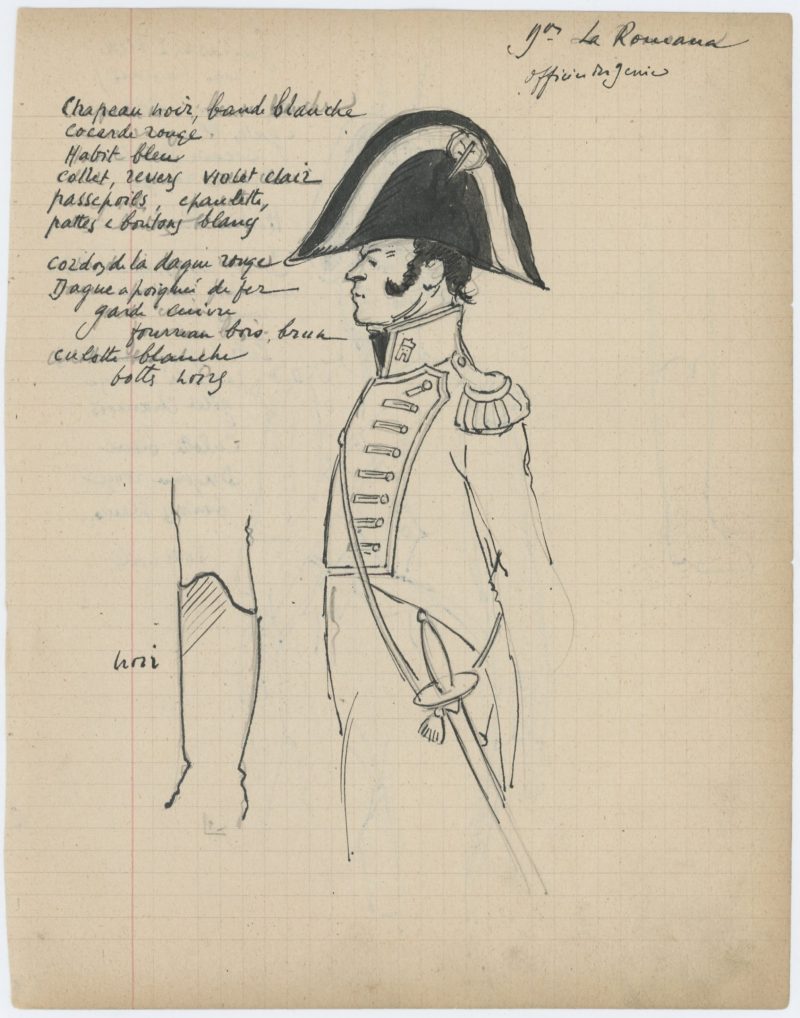 Don La Romana
officier du génie
Chapeau noir, bande blanche
cocarde rouge
Habit bleu
collet, revers violet clair
passepoils, epaulette,
pattes e boutons blancs
cordon de la dague rouge
Dague a poignée de fer
garde cuivre
fourreau bois, brun
culotte blanche
botte noirs
noir